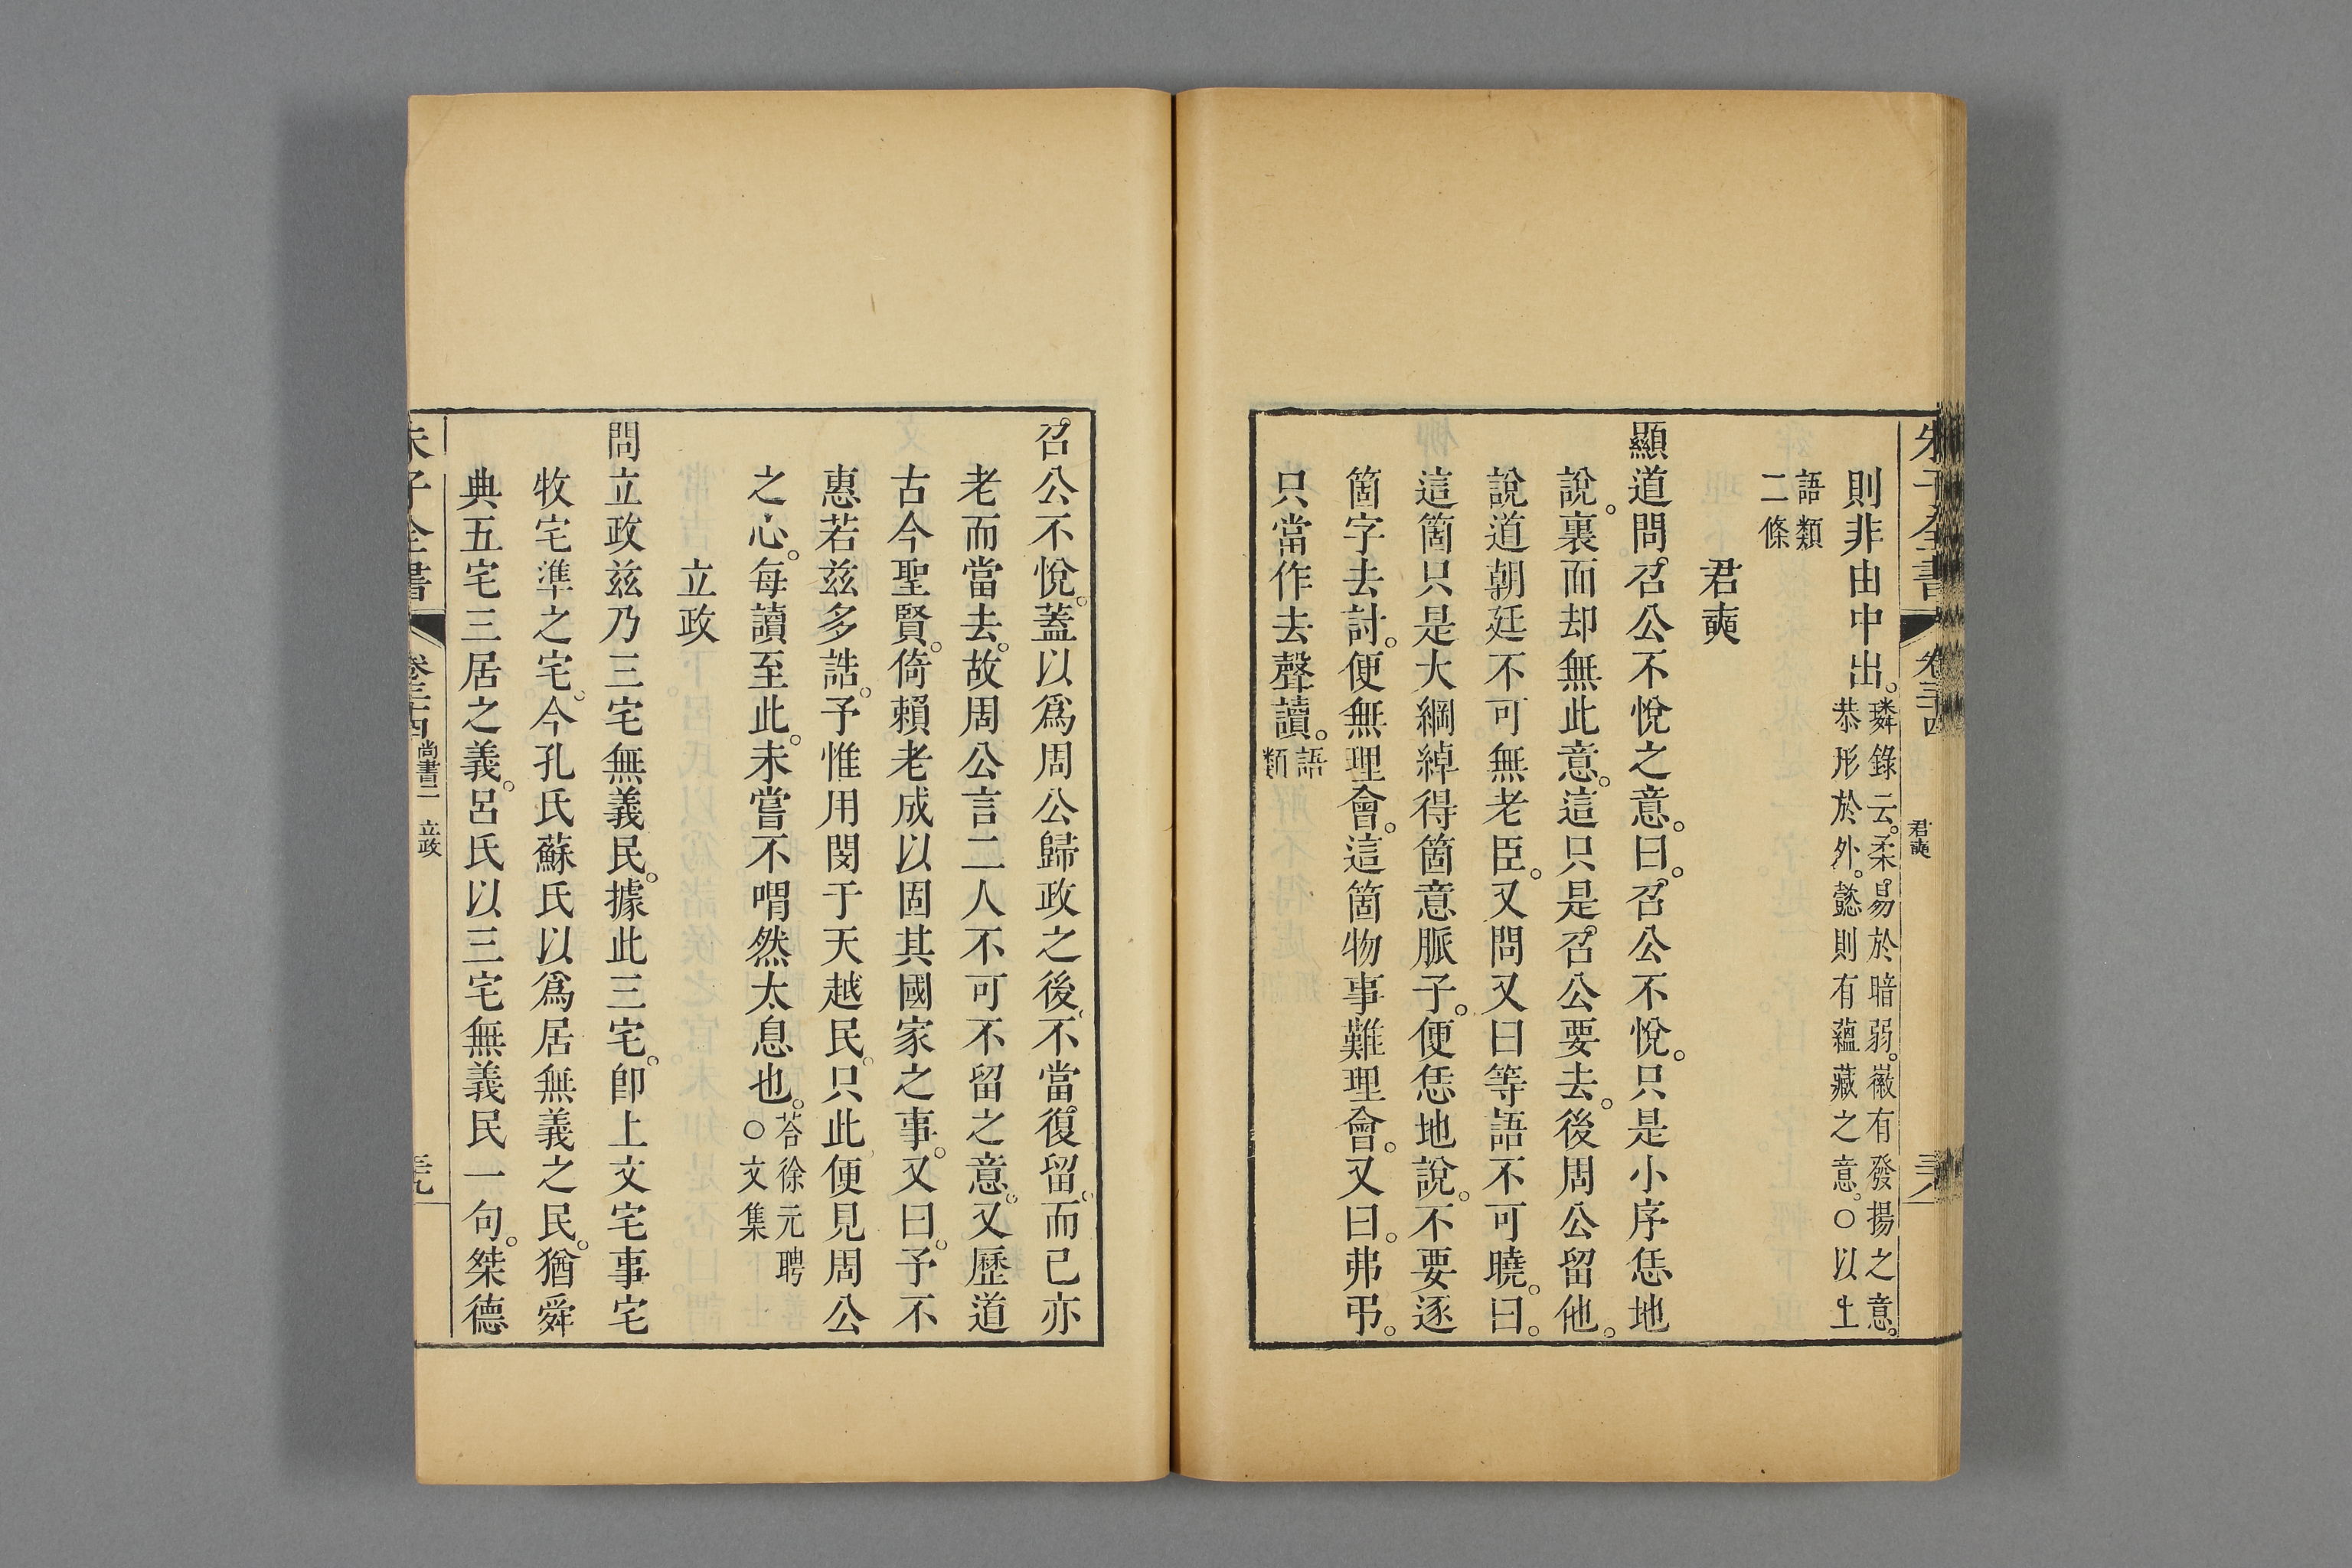 朱子全書
卷三十四
君奭
三八
則非由中出。璘錄云。柔易於暗弱。徽有發揚之意。
恭形於外。懿則有蘊藏之意。○以上
語類
二條
君奭
顯道問。召公不悅之意。曰。召公不悅。只是小序恁地
說。裏面却無此意。這只是召公要去。後周公留他。
說道朝廷不可無老臣。又問又曰等語不可曉。曰。
這箇只是大綱綽得箇意脈子。便恁地說。不要逐
箇字去討。便無理會。這箇物事難理會。又曰。弗弔。
只當作去聲讀。語
類
召公不悅。蓋以爲周公歸政之後。不當復留。而已亦
老而當去。故周公言二人不可不留之意。又歷道
古今聖賢。倚賴老成以固其國家之事。又曰。予不
惠若兹多誥。予惟用閔于天越民。只此便見周公
之心。每讀至此。未嘗不喟然太息也。荅徐元聘
○文集
立政
問立政兹乃三宅無義民。據此三宅。卽上文宅事宅
牧宅準之宅。今孔氏蘇氏以爲居無義之民。猶舜
典五宅三居之義。呂氏以三宅無義民一句。桀德
朱子全書
卷三十四
尚書二
立政
三九